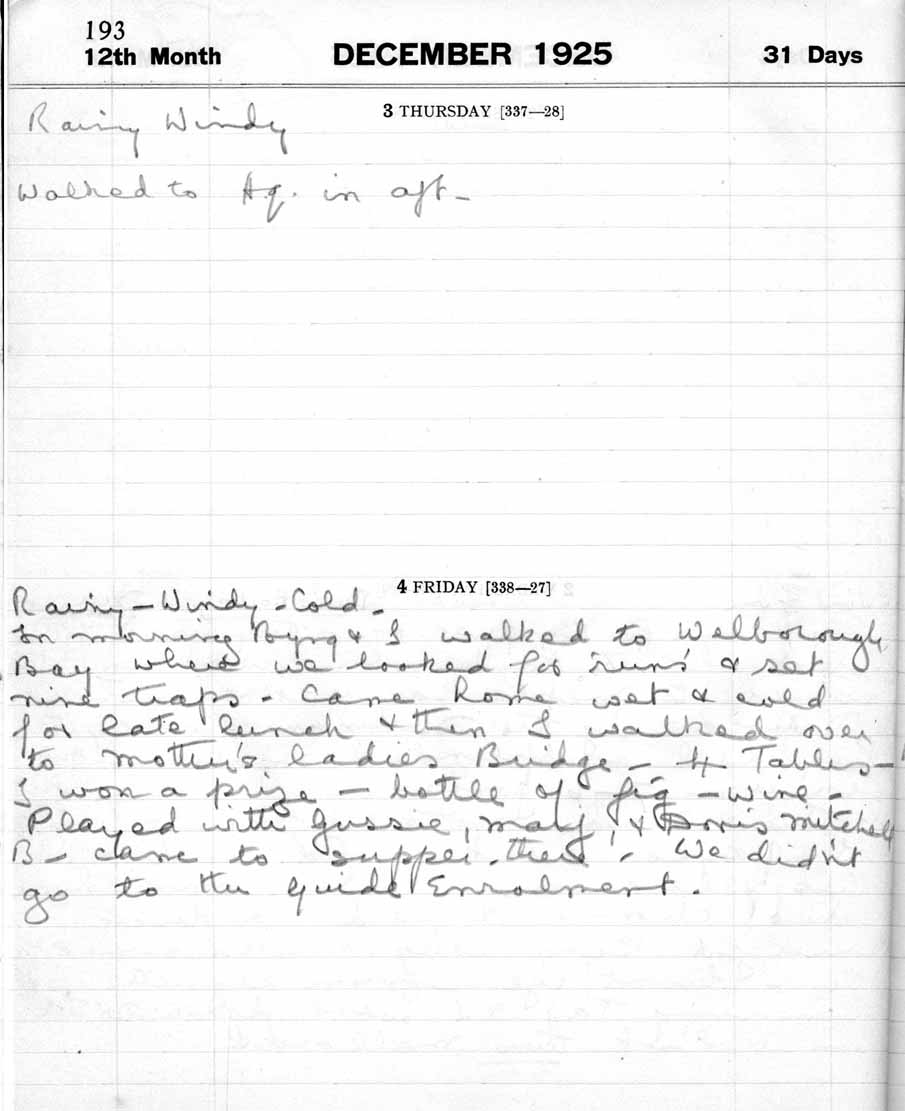 193
12th Month DECEMBER 1925 31 Days
3 THURSDAY [337—28]
Rainy Windy
Walked to Hq. in aft -
4 FRIDAY [338—27]
Rainy - Windy - Cold -
In morning Byng & I walked to Welborough
Bay where we looked for 'runs' & set
nine traps - Came home wet & cold
for late lunch & then I walked over
to mother's ladies Bridge - 4 Tables -
I won a prize - bottle of fig - wine -
Played with Gussie, May, & Doris Mitchell
B - came to supper there - We didn't
go to the guide Enrolment .